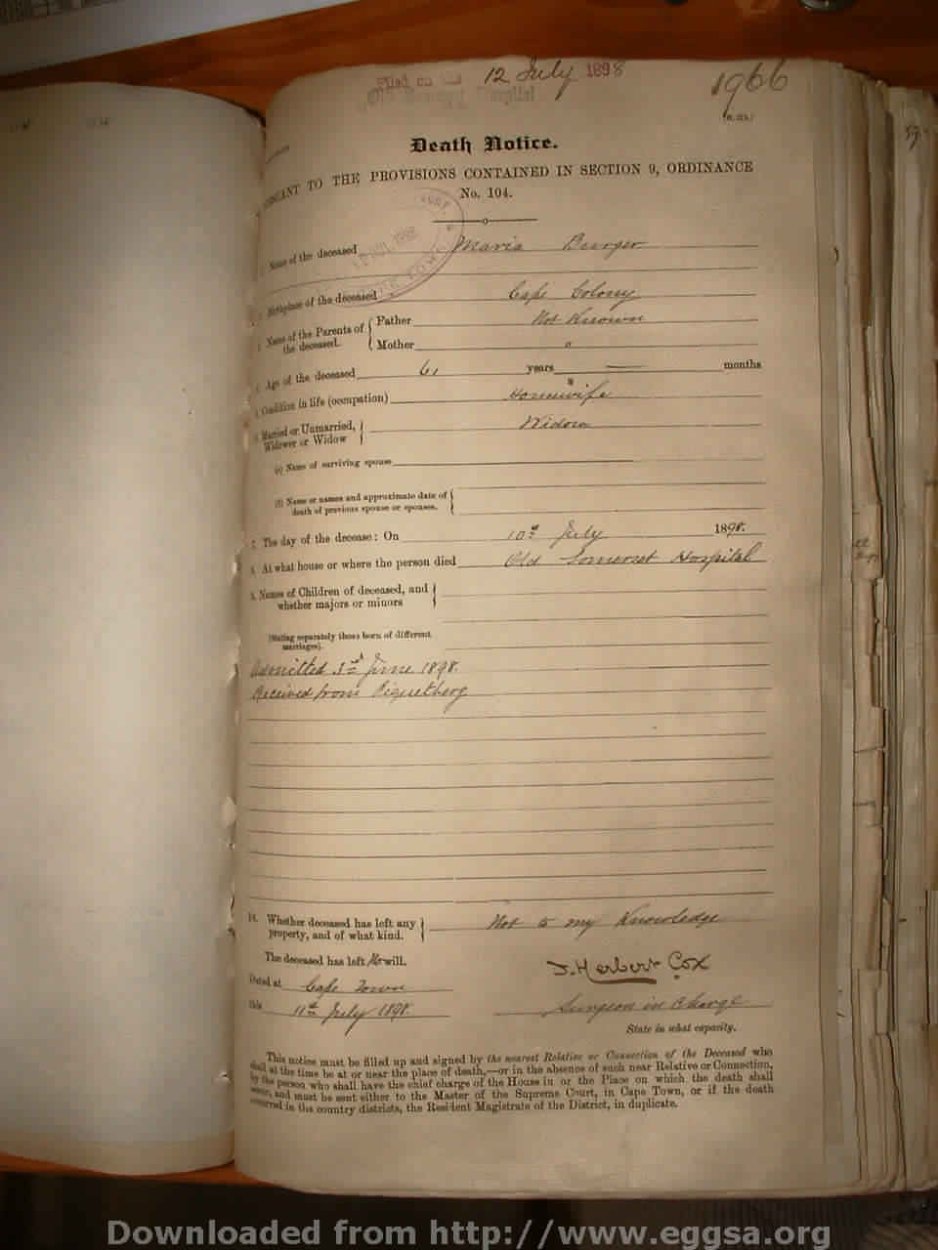 Filed on the 12 July 1898
Hospital
1966
Death Notice.
TO THE PROVISIONS CONTAINED IN SECTION 9, ORDINANCE
No. 104.
Name of the deceased Maria Burger
Birthplace of the deceased Cape Colony
Name of the Parents of the deceased. { Father Not Known
Mother "
Age of the deceased 61 years — months
Condition in life (occupation) Housewife
Married or Unmarried, Widower or Widow } Widow
(a) Name of surviving spouse
(b) Name or names and approximate date of
death of previous spouse or spouses. {
7. The day of the decease: On 10th July 1898.
8. At what house or where the person died Old Somerset Hospital
9. Names of Children of deceased, and
whether majors or minors }
(Stating separately those born of different
marriages).
Admitted 3rd June 1898.
Received from Piquetberg
10. Whether deceased has left any
property, and of what kind. } Not to my Knowledge
The deceased has left No will.
J. Herbert Cox
Dated at Cape Town
this 11th July 1898.
Surgeon in Charge
State in what capacity.
This notice must be filled up and signed by the nearest Relative or Connection of the Deceased who
shall at the time be at or near the place of death,—or in the absence of such near Relative or Connection,
by the person who shall have the chief charge of the House in or the Place on which the death shall
occur, and must be sent either to the Master of the Supreme Court, in Cape Town, or if the death
occurred in the country districts, the Resident Magistrate of the District, in duplicate.
Downloaded from http://www.eggsa.org